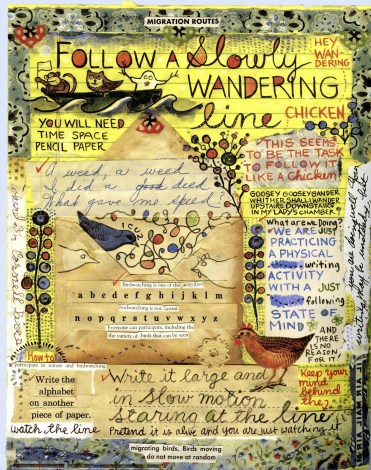 MIGRATION ROUTES
FOLLOW A Slowly
WANDERING
line
HEY
WAN-
DERING
CHICKEN
YOU WILL NEED
TIME SPACE
PENCIL PAPER
THIS SEEMS
TO BE THE TASK
TO FOLLOW IT
LIKE A Chicken
A weed, a weed
I did a deed
What gave me speed?
GOOSEY GOOSEY GANDER
WHITHER SHALL I WANDER
UPSTAIRS DOWNSTAIRS
IN MY LADY'S CHAMBER?
What are we Doing?
WE ARE JUST
PRACTICING
A PHYSICAL
writing
ACTIVITY
WITH A JUST
following
STATE OF
MIND
AND
THERE IS
NO
REASON,
FOR IT.
Birdwatching is one of the
a b c d e f g h i j k l m
birdwatching is not
n o p q r s t u v w x y z
Everyone can participate, including the
the variety of birds that can be seen
How to
participate in nature and birdwatching
Write the
alphabet
on another
piece of paper.
watch the line
Write it large and
in Slow motion
Staring at the line
Pretend it is alive and you are just watching it.
Keep your
mind
behind
the
migrating birds. Birds moving
do not move at random
AIR MAIL